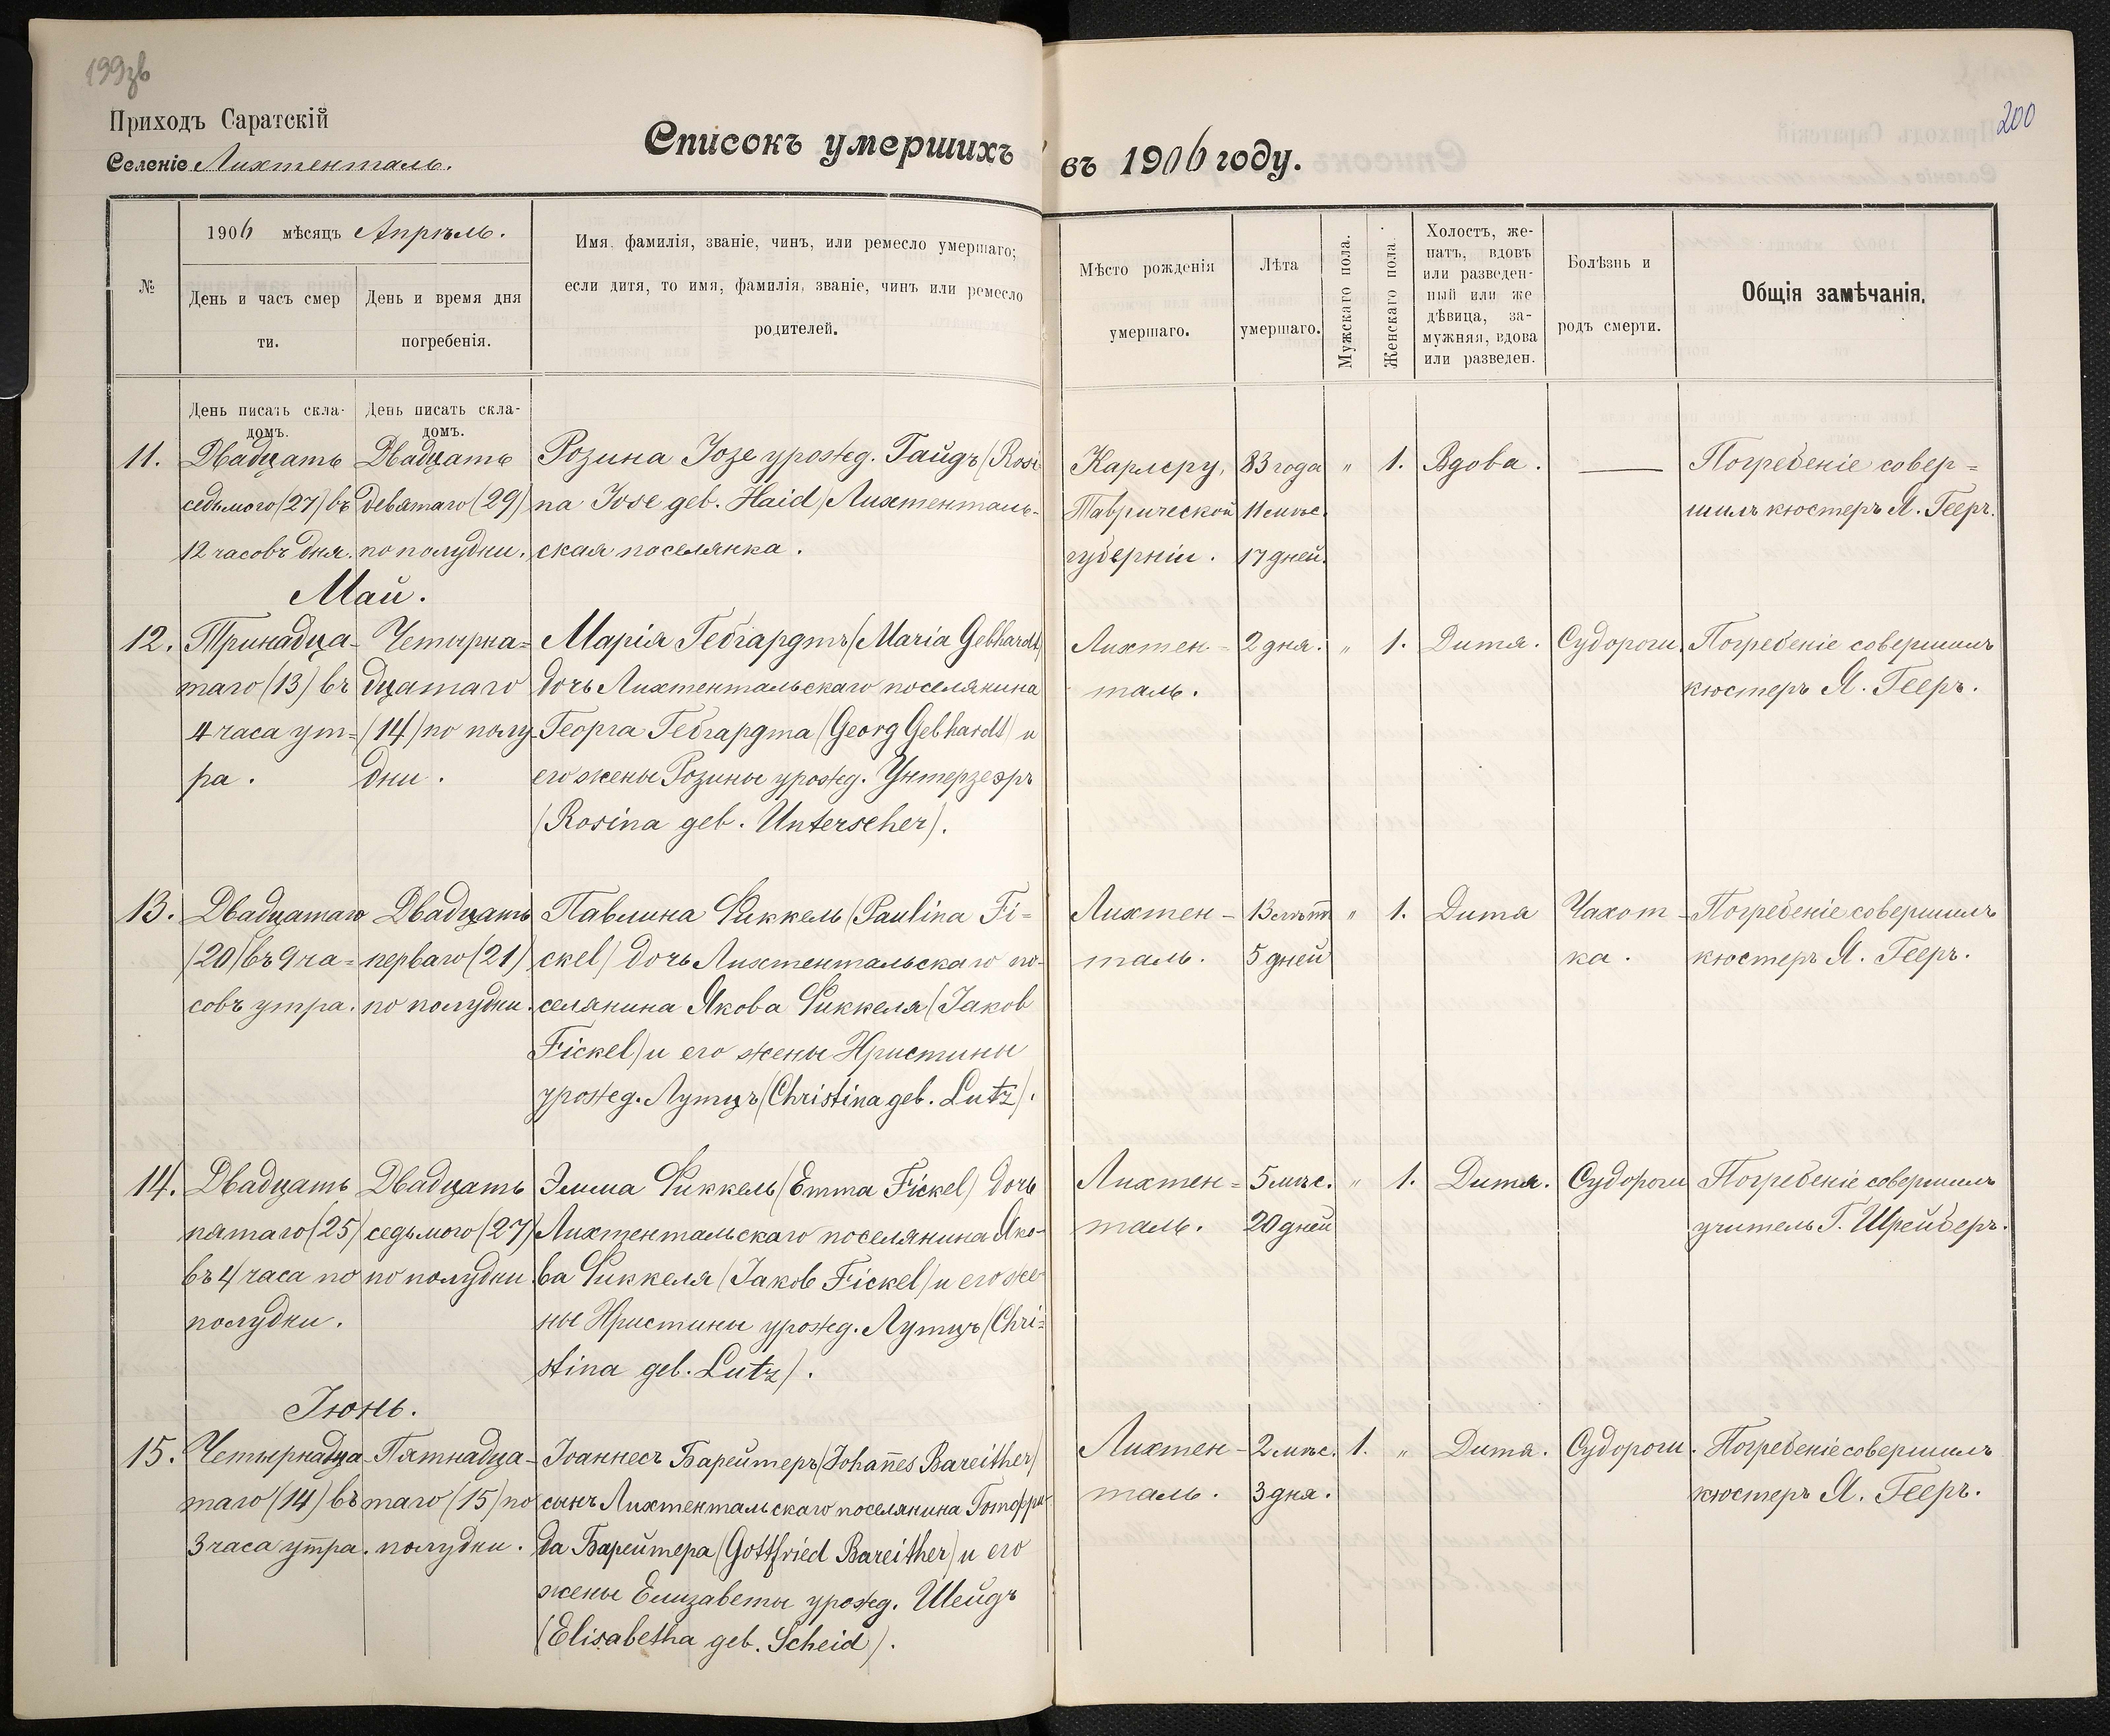 199зв
200
Приходъ Саратскій
Селеніе Лихтенталь.
Списокъ умершихъ въ 1906 году.
№
1906 мѣсяцъ Апрѣль.
День и часъ смер
ти.
День и время дня
погребенія.
Имя, фамилія, званіе, чинъ, или ремесло умершаго;
если дитя, то имя, фамилія, званіе, чинъ или ремесло
родителей.
Мѣсто рожденія
умершаго.
Лѣта
умершаго.
Мужскаго пола.
Женскаго пола.
Холостъ, же-
натъ, вдовъ
или разведен-
ный или же
дѣвица, за-
мужняя, вдова
или разведен.
Болѣзнь и
родъ смерти.
Общія замѣчанія.
День писать скла-
домъ.
День писать скла-
домъ.
11.
Двадцать
седьмого (27) въ
12 часовъ дня.
Двадцать
девятаго (29)
по полудни.
Розина Іозе урожд. Гайдъ (Rosi
na Jose geb. Haid) Лихтенталь-
ская поселянка.
Карлсру,
Таврической
губерніи.
83 года
11 мѣс.
17 дней.
" 1.
Вдова.
—
Погребеніе совер=
шилъ кюстеръ Я. Гееръ.
Май.
12.
Тринадца-
таго (13) въ
4 часа ут=
ра.
Четырна=
дцатаго
(14) по полу-
дни.
Марія Гебгардтъ (Maria Gebhardt)
дочь Лихтентальскаго поселянина
Георга Гебгардта (Georg Gebhardt) и
его жены Розины урожд. Унтерзеэръ
(Rosina geb. Unterseher).
Лихтен-
таль.
2 дня.
" 1.
Дитя.
Судороги.
Погребеніе совершилъ
кюстеръ Я. Гееръ.
13.
Двадцатаго
(20) въ 9 ча=
совъ утра.
Двадцать
перваго (21)
по полудни.
Павлина Фиккель (Paulina Fi=
ckel) дочь Лихтентальскаго по-
селянина Якова Фиккеля (Jakob
Fickel) и его жены Христины
урожд. Лутцъ (Christina geb. Lutz).
Лихтен-
таль.
13 лѣтъ
5 дней
" 1.
Дитя
Чахот-
ка.
Погребеніе совершилъ
кюстеръ Я. Гееръ.
14.
Двадцать
пятаго (25)
въ 4 часа по
полудни.
Двадцать
седьмого (27)
по полудни.
Эмма Фиккель (Emma Fickel) дочь
Лихтентальскаго поселянина Яко-
ва Фиккеля (Jakob Fickel) и его же-
ны Христины урожд. Лутцъ (Chri=
stina geb. Lutz).
Лихтен=
таль.
5 мѣс.
20 дней
" 1.
Дитя.
Судороги
Погребеніе совершилъ
учитель Г. Шрейберъ.
Іюнь.
15.
Четырнадца-
таго (14) въ
3 часа утра.
Пятнадца-
таго (15) по
полудни.
Іоаннесъ Барейтеръ (Johan̄es Bareither)
сынъ Лихтентальскаго поселянина Готфри-
да Барейтера (Gottfried Bareither) и его
жены Елизаветы урожд. Шейдъ
(Elisabetha geb. Scheid).
Лихтен-
таль.
2 мѣс.
3 дня.
1. "
Дитя.
Судороги.
Погребеніе совершилъ
кюстеръ Я. Гееръ.